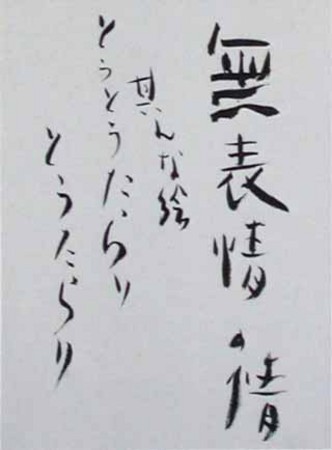 無表情の情
其んな絵
とうとうたらり
とうたらり